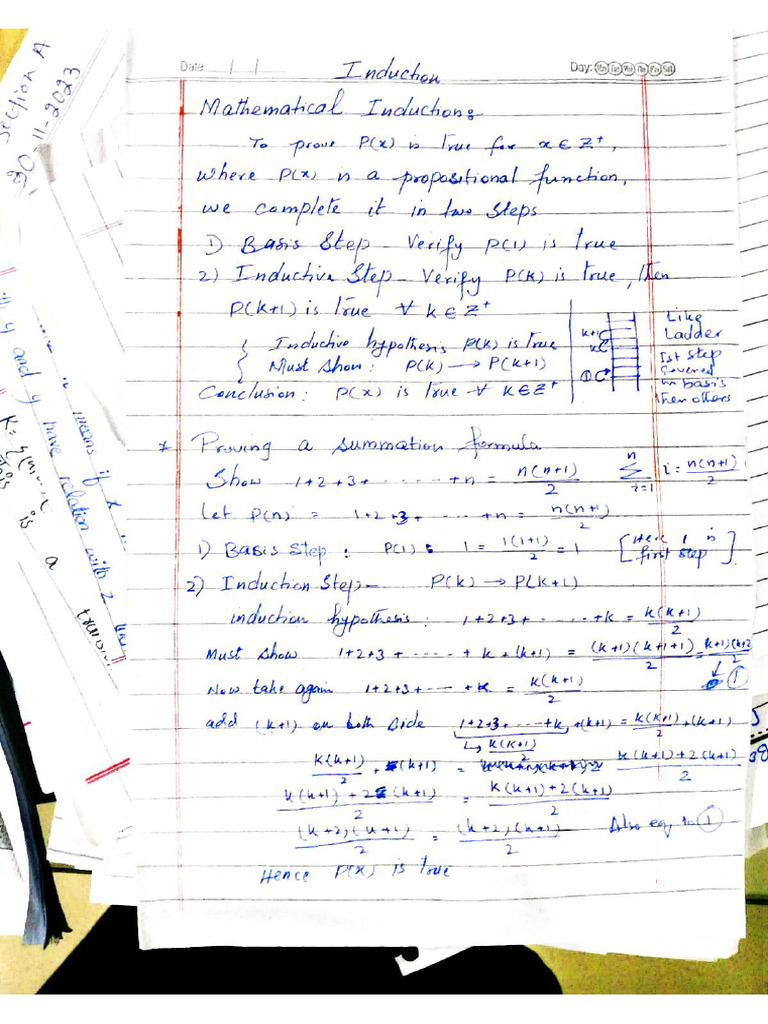 Section A
20-11-2023
Date / /
Induction
Day:
Mathematical Induction:
To prove P(x) is true for x ∈ Z⁺,
where P(x) is a propositional function,
we complete it in two steps
1) Basis Step - Verify P(1) is true
2) Inductive Step - Verify P(k) is true, then
P(k+1) is true ∀ k ∈ Z⁺
{ Inductive hypothesis P(k) is true
Must show: P(k) → P(k+1)
Conclusion: P(x) is true ∀ k ∈ Z⁺
k+1
k
①
Like
Ladder
1st step
covered
in basis
then others
* Proving a summation formula
Show 1+2+3+ ······ +n = n(n+1)/2
n Σ i=1 i = n(n+1)/2
Let P(n) = 1+2+3+ ······ +n = n(n+1)/2
1) Basis Step: P(1): 1 = 1(1+1)/2 = 1 [Here 1 is first step]
2) Induction Step - P(k) → P(k+1)
induction hypothesis: 1+2+3+ ······ +k = k(k+1)/2
Must show 1+2+3+ ······ + k + (k+1) = (k+1)(k+1+1)/2 = (k+1)(k+2)/2
↓ ①
Now take again 1+2+3+ ···· +k = k(k+1)/2
add (k+1) on both side 1+2+3+ ··· +k, +(k+1) = k(k+1)/2 + (k+1)
↳ k(k+1)/2
k(k+1)/2 + (k+1) = k(k+1)+2(k+1)/2
k(k+1)+2(k+1)/2 = k(k+1)+2(k+1)/2
(k+2)(k+1)/2 = (k+2)(k+1)/2 Also eq to ①
Hence P(x) is true
4 and y have relation with 2
means if x
is a